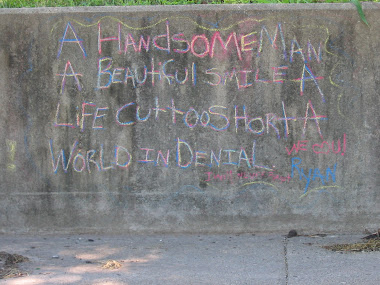 A HandSomeMan
A Beautiful Smile A
Life Cut too Short A
World in Denial.
we still